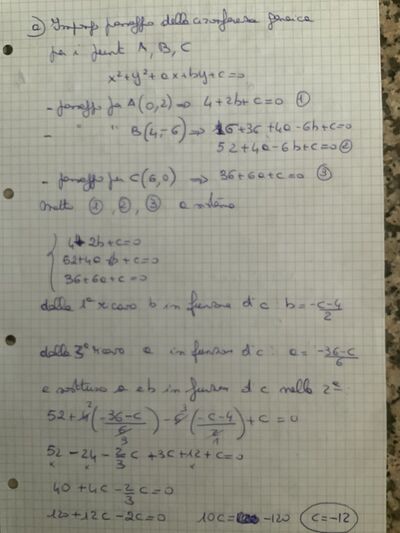 a) Impongo passaggio della circonferenza generica
per i punti A, B, C
x²+y²+ax+by+c=0
- passaggio per A(0,2) => 4+2b+c=0 ①
- " " B(4,-6) => 16+36+4a-6b+c=0
52+4a-6b+c=0 ②
- passaggio per C(6,0) => 36+6a+c=0 ③
Metto ①, ②, ③ a sistema
4+2b+c=0
52+4a-6b+c=0
36+6a+c=0
dalla 1ª ricavo b in funzione di c: b=-c-4/2
dalla 3ª ricavo a in funzione di c: a=-36-c/6
e sostituisco a e b in funzione di c nella 2ª
52+4(-36-c/6)-6(-c-4/2)+c=0
52-24-2/3c+3c+12+c=0
40+4c-2/3c=0
120+12c-2c=0 10c=-120 c=-12